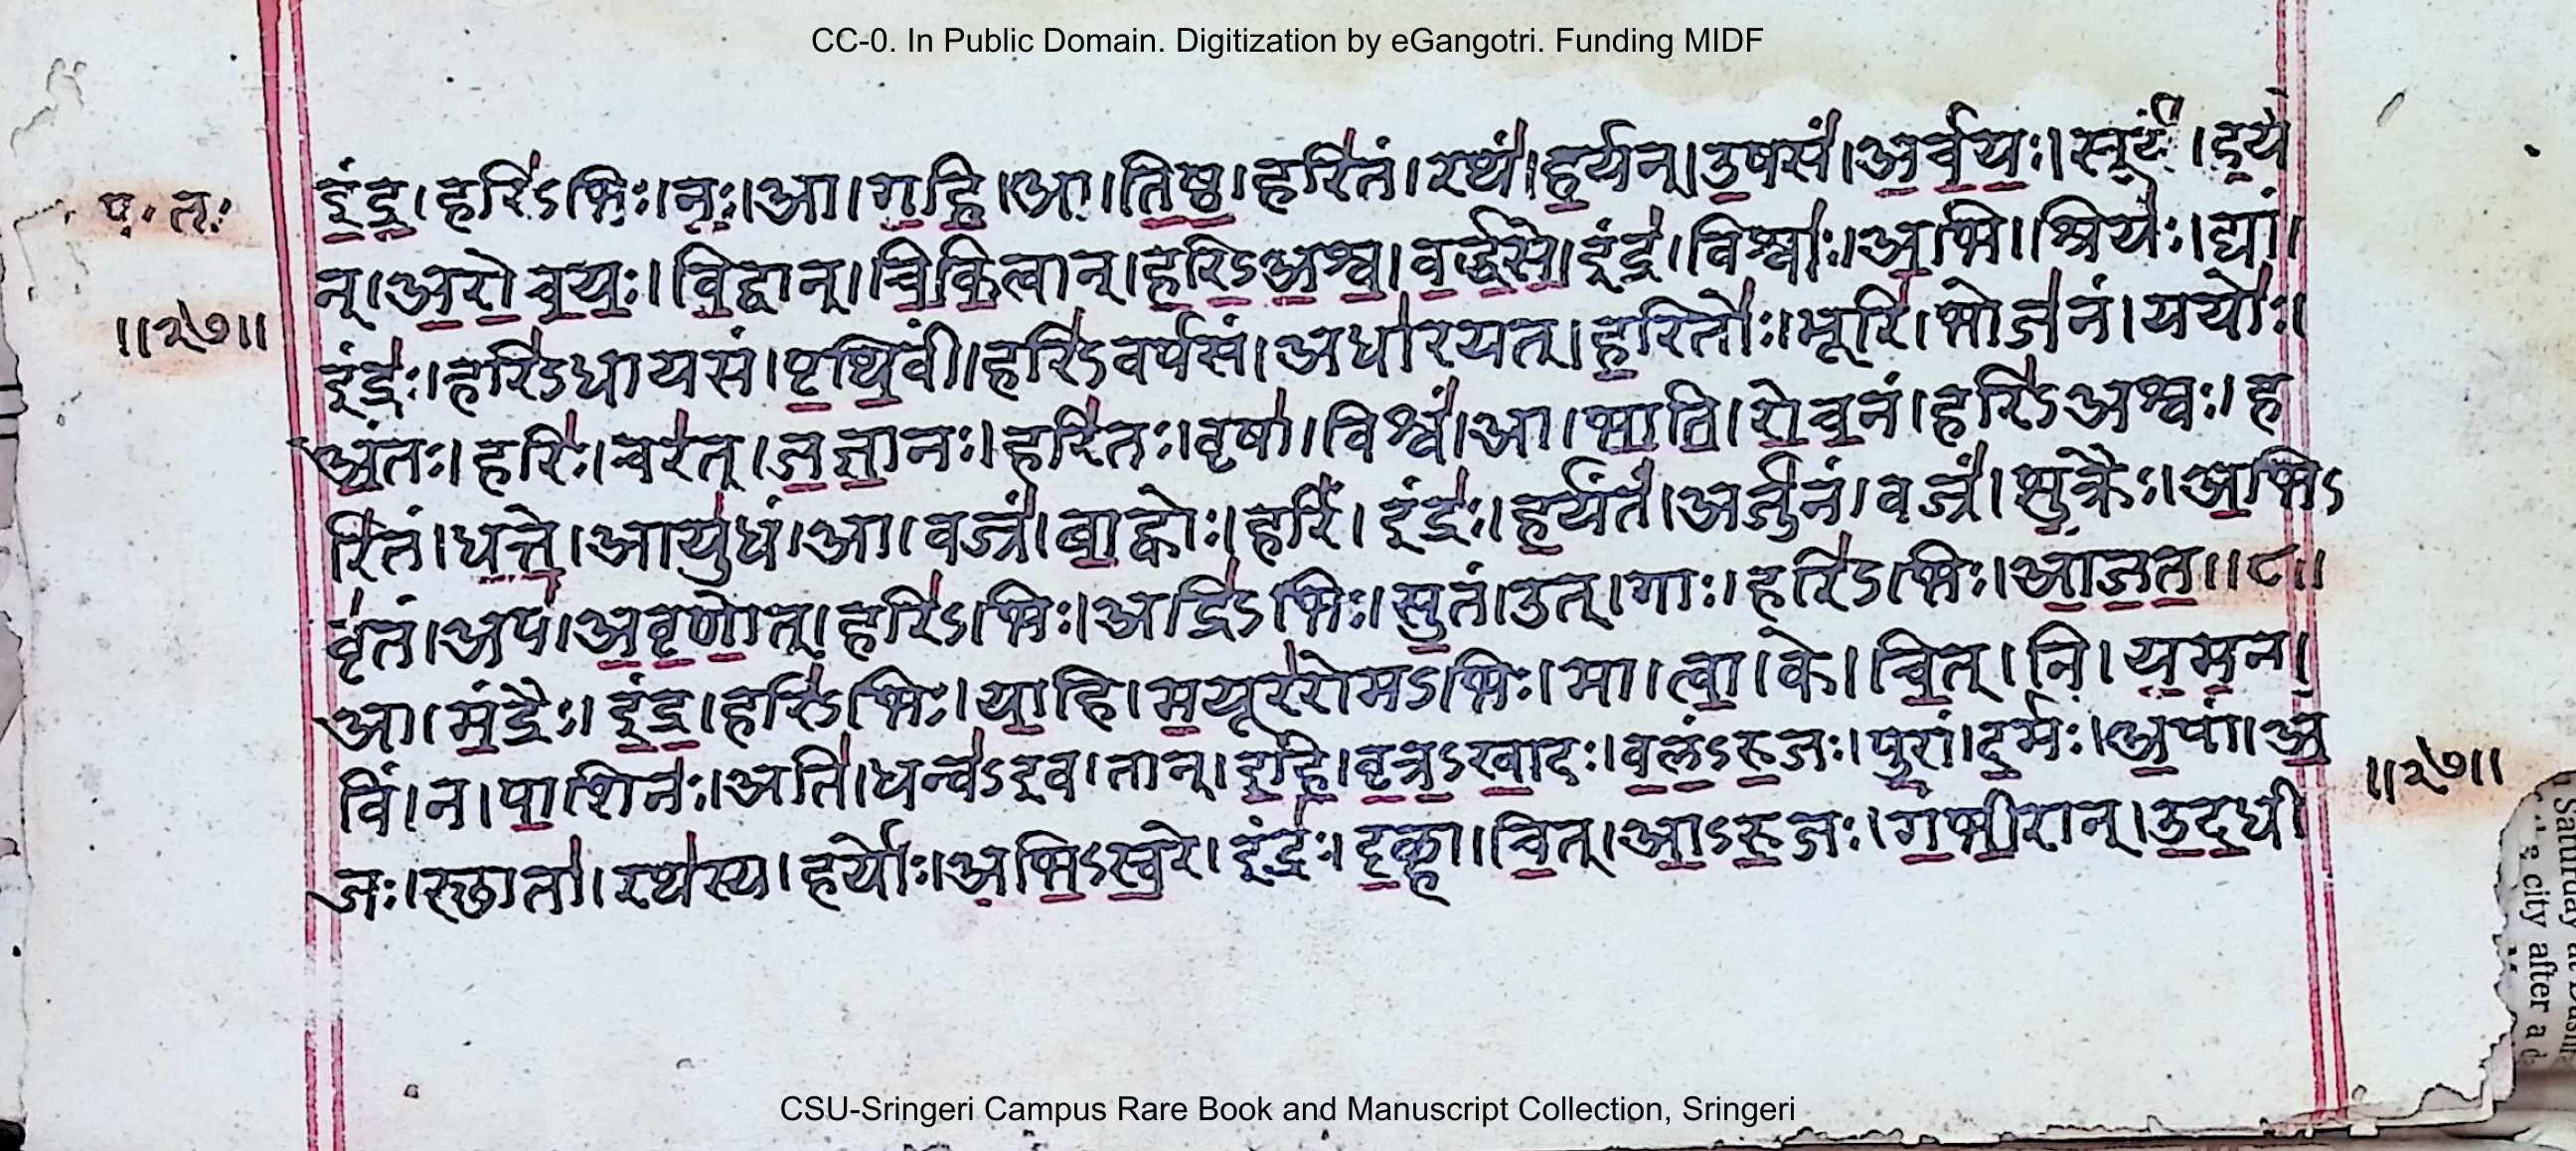 CC-0. In Public Domain. Digitization by eGangotri. Funding MIDF
इंद्र।हरिऽभिः।नः।आ।गहि।आ।तिष्ठ।हरितं।रथं।हर्यन्।उषसं।अर्चयः।सूर्यं।हर्य
प॰ तः
न्।अरोचयः।विद्वान्।चिकित्वान्।हरिऽअश्व।वर्द्धसे।इंद्र।विश्वाः।अभि।श्रियः।द्यां।
॥२७॥
इंद्रः।हरिऽधायसं।पृथिवीं।हरिऽवर्पसं।अधारयत्।हरितोः।भूरि।भोजनं।ययोः।
अंतः।हरिः।चरत्।जज्ञानः।हरितः।वृषा।विश्वं।आ।भाति।रोचनं।हरिऽअश्वः।ह
रितं।धत्ते।आयुधं।आ।वज्रं।बाह्वोः।हरिं।इंद्रः।हर्यंतं।अर्जुनं।वज्रं।शुक्रैः।अभिऽ
वृतं।अप।अवृणोत्।हरिऽभिः।अद्रिऽभिः।सुतं।उत्।गाः।हरिऽभिः।आजत॥८॥
आ।मंद्रैः।इंद्र।हरिऽभिः।याहि।मयूररोमऽभिः।मा।त्वा।के।चित्।नि।यमन।
विं।न।पाशिनः।अति।धन्वऽइव।तान्।इहि।वृत्रऽखादः।वलंऽरुजः।पुरां।दर्मः।अपां।अ
॥२७॥
जः।स्छाता।रथस्य।हर्योः।अभिऽस्वरे।इंद्रः।दृळ्हा।चित्।आऽरुजः।गंभीरान्।उदधी
CSU-Sringeri Campus Rare Book and Manuscript Collection, Sringeri
city after a